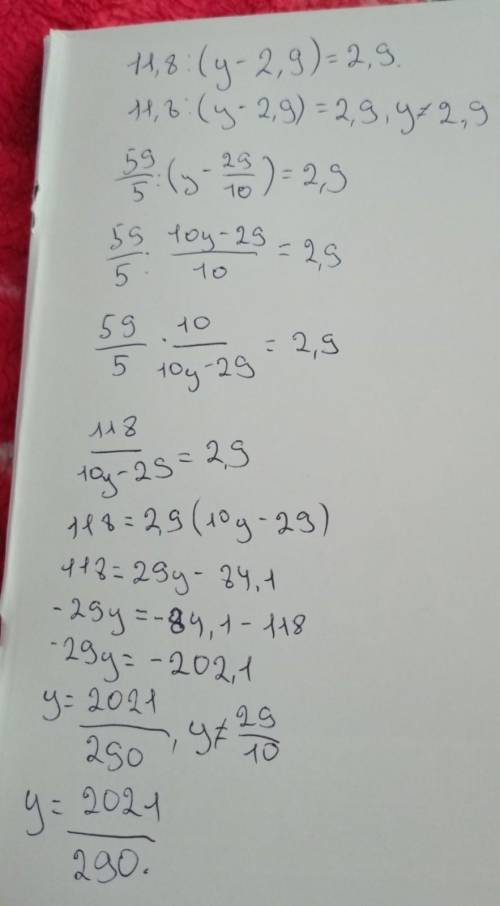 11,8:(y-2,9)=2,9.
11,8:(y-2,9)=2,9, y≠2,9
59/5:(y-29/10)=2,9
59/5:(10y-29)/10=2,9
59/5·10/(10y-29)=2,9
118/(10y-29)=2,9
118=2,9(10y-29)
118=29y-84,1
-29y=-84,1-118
-29y=-202,1
y=2021/290, y≠29/10
y=2021/290.